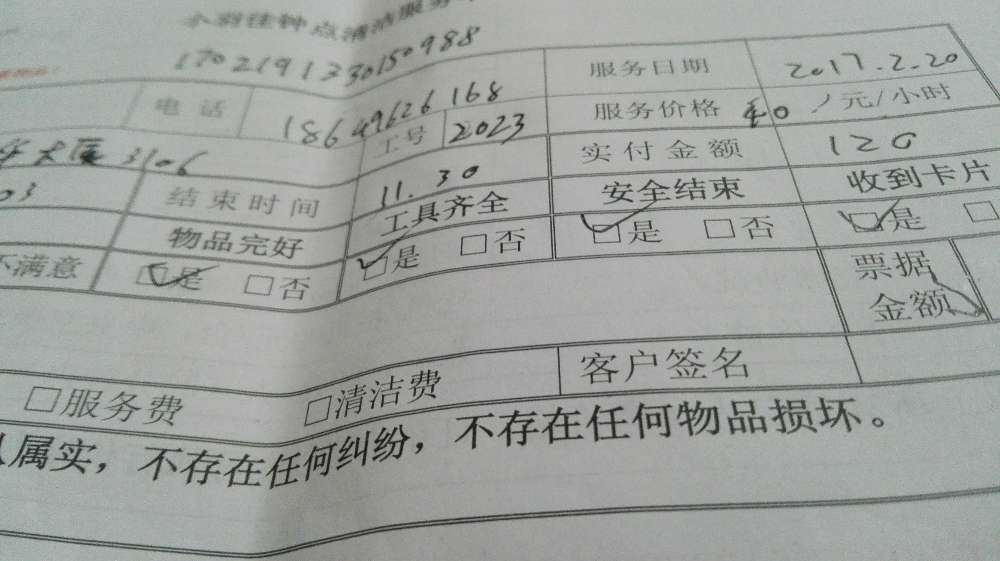 小羽佳钟点清洁服务
1702191330150988
电话 18649626168 服务日期 2017.2.20
大厦3106 工号 2023 服务价格 40 /元/小时
03 结束时间 11.30 实付金额 120
物品完好 工具齐全 安全结束 收到卡片
不满意 □是 □否 □是 □否 □是 □否 □是 □
票据金额
□服务费 □清洁费 客户签名
属实，不存在任何纠纷，不存在任何物品损坏。